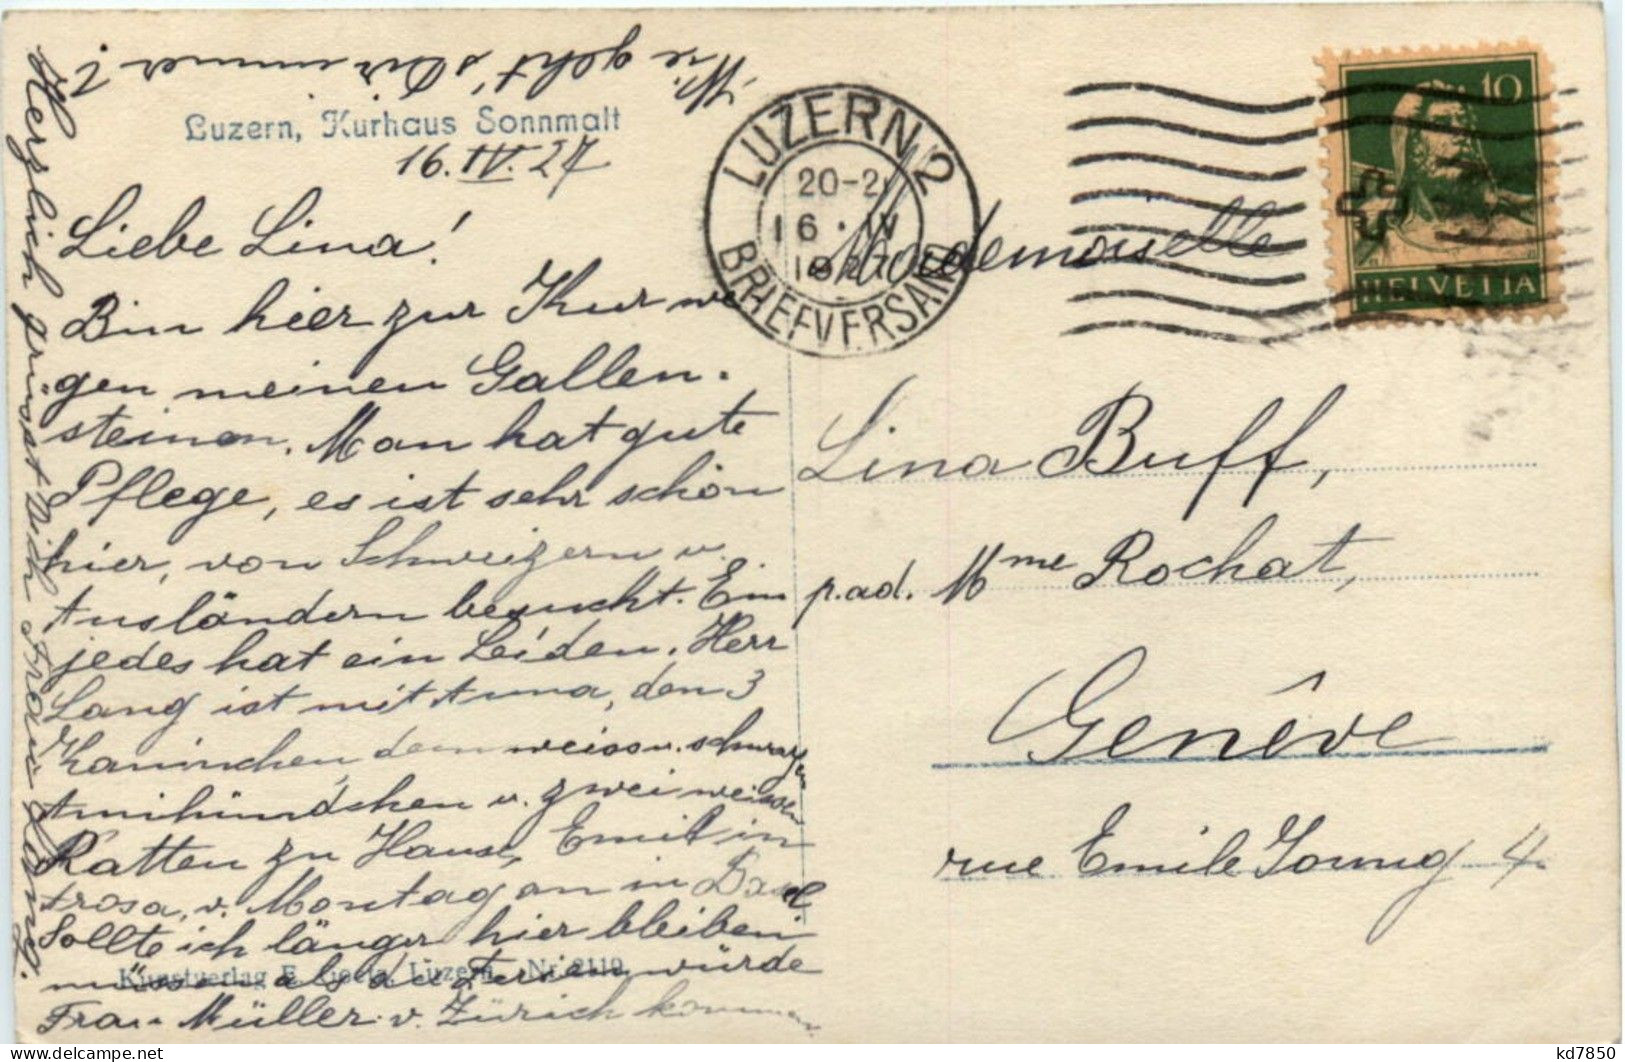 Wie geht's Dir immer?
Luzern, Kurhaus Sonnmatt
16. IV. 27
Liebe Lina!
Bin hier zur Kur we
gen meinen Gallen-
steinen. Man hat gute
Pflege, es ist sehr schön
hier, von Schweizern u.
Ausländern besucht. Ein
jedes hat ein Leiden. Herr
Lang ist mit Anna, den 3
Kaninchen dem weiss u. schwarzen
Amihündchen u. zwei weissen
Ratten zu Hause, Emil in
Arosa, v. Montag an in Basel
Sollte ich länger hier bleiben
müssen als die Ferien würde
Frau Müller v. Zürich kommen
Herzlich grüsst Dich Frau Lang.
Kunstverlag E. Goetz, Luzern. Nr. 2119
LUZERN 2
20-2
16·IV
1927
BRIEFVERSAND
10
HELVETIA
Mademoiselle
Lina Buff,
p.ad. Mme Rochat,
Genêve
rue Emile Joung 4.
kd7850